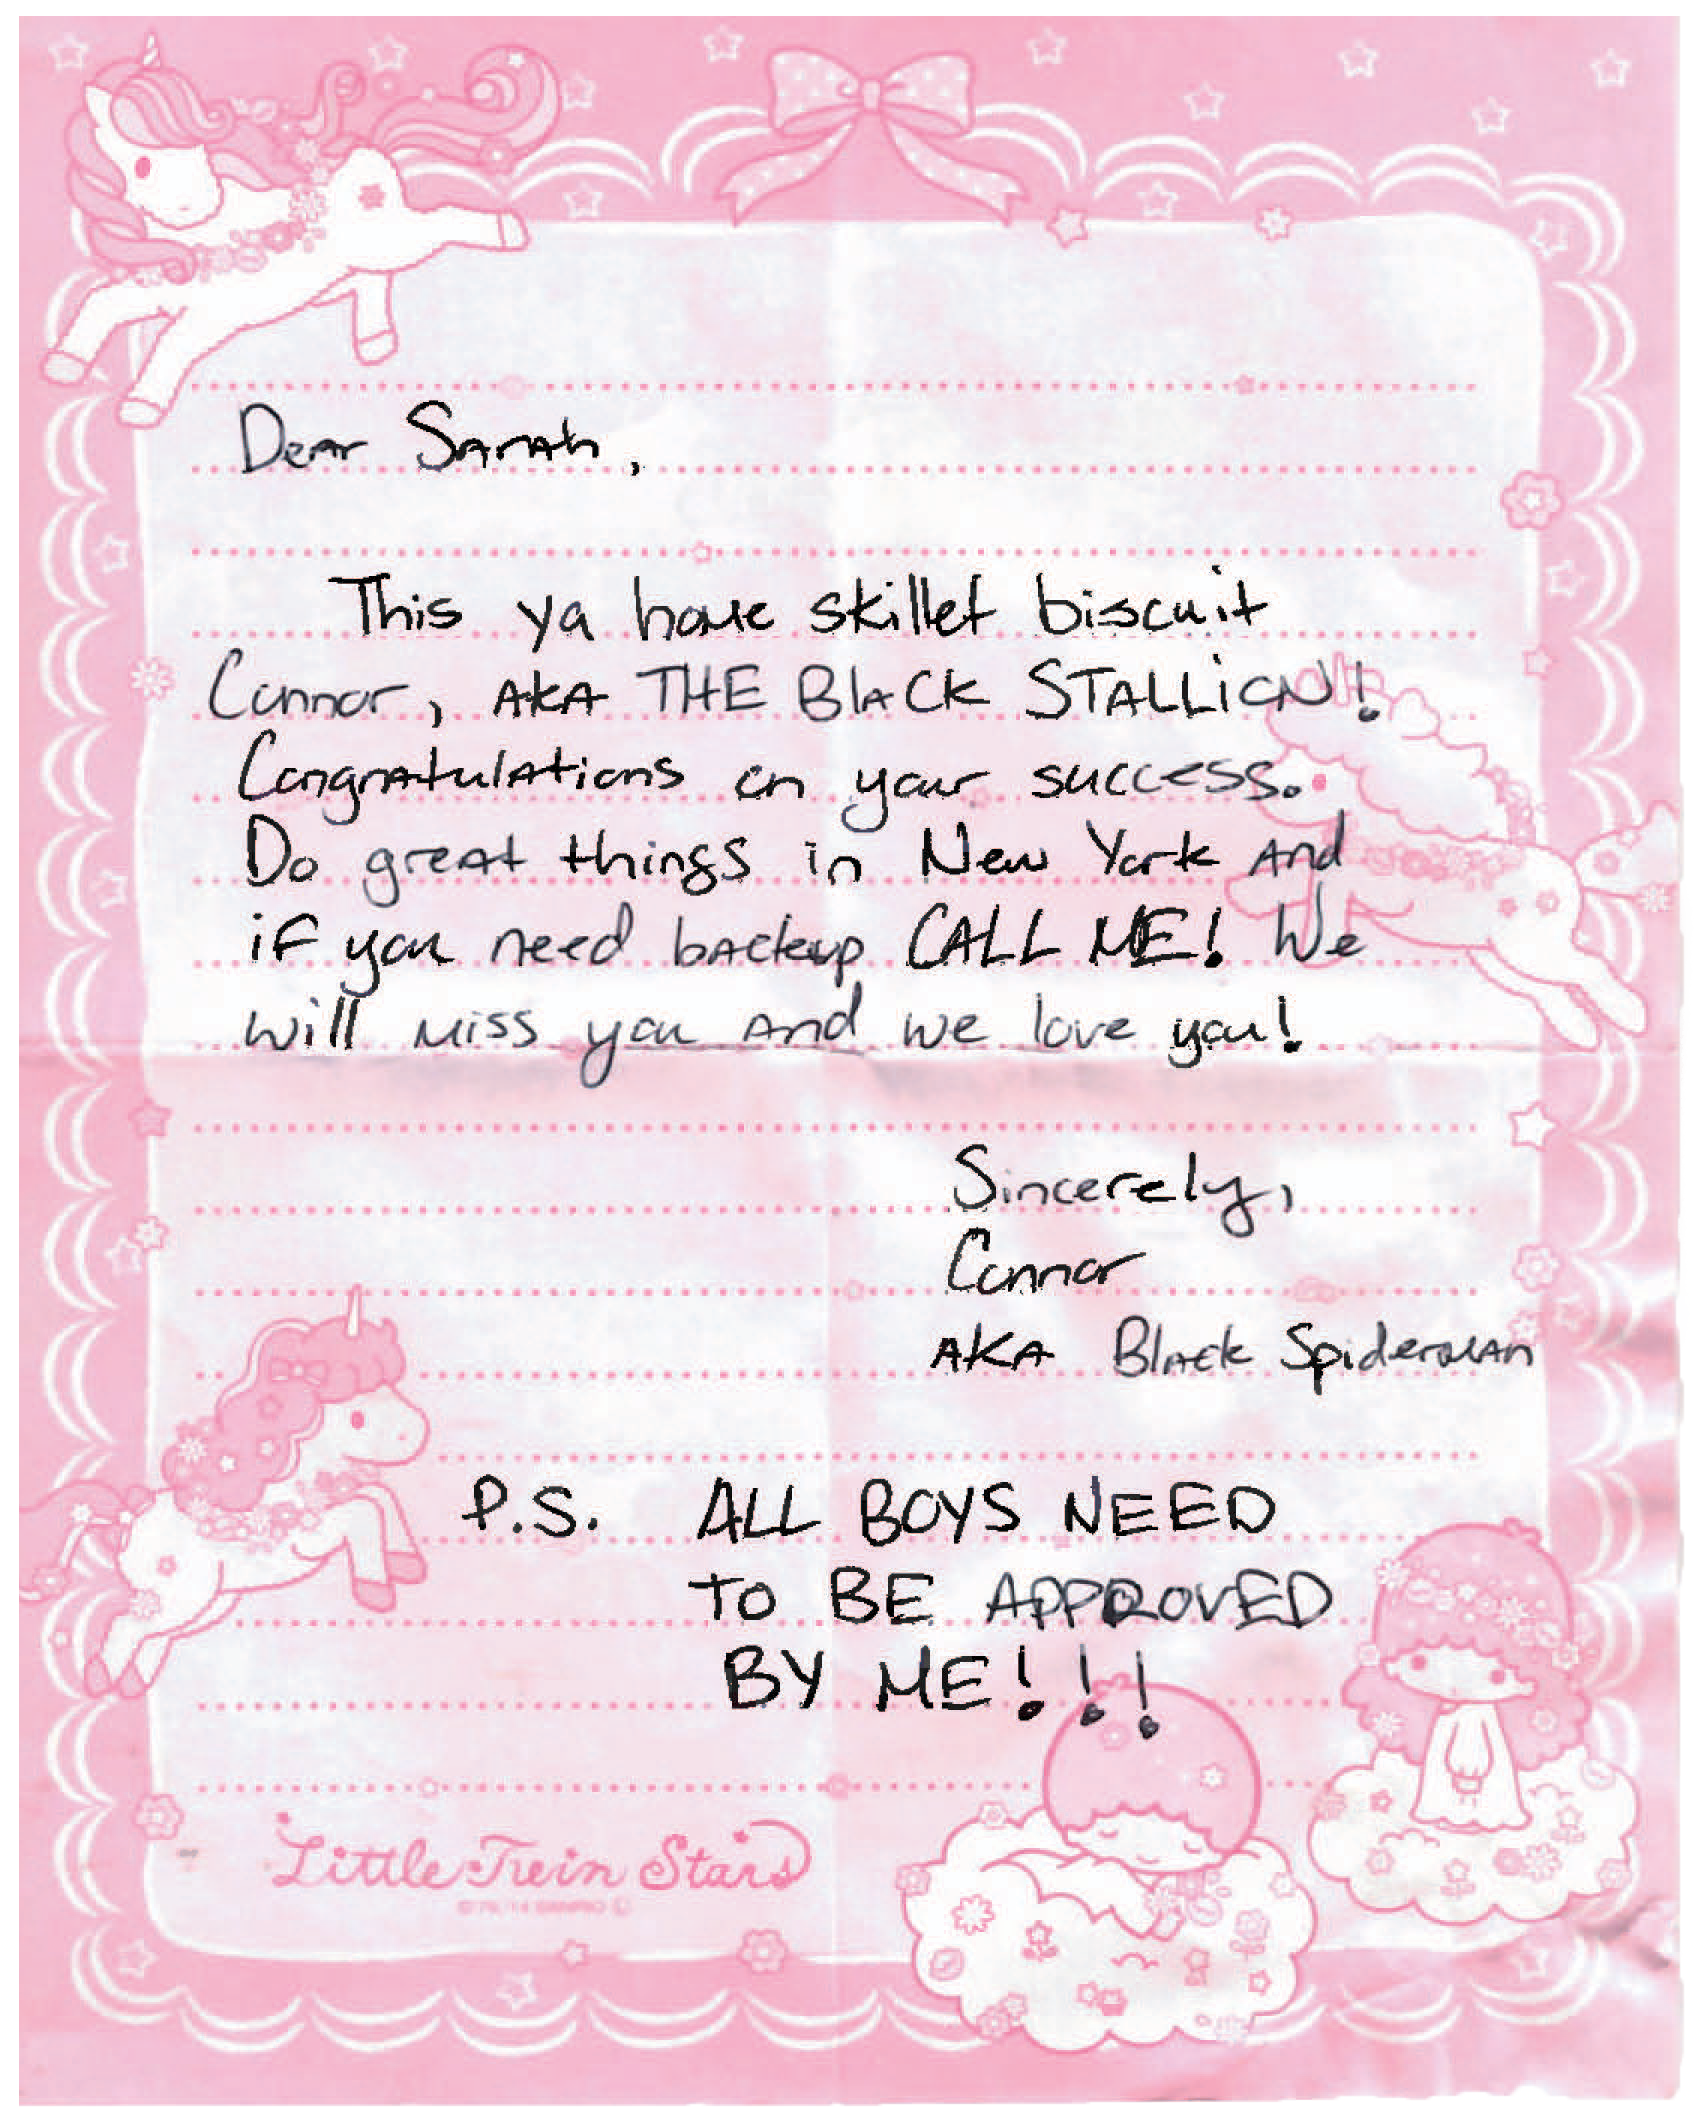 Dear Sarah,
This ya home skillet biscuit
Connor, AKA THE BlACK STALLiON!
Congratulations on your success.
Do great things in New York and
if you need backup CALL ME! We
will miss you and we love you!
Sincerely,
Connor
AKA Black Spiderman
P.S. ALL BOYS NEED
TO BE APPROVED
BY ME!!!
Little Twin Stars
© '76, '14 SANRIO